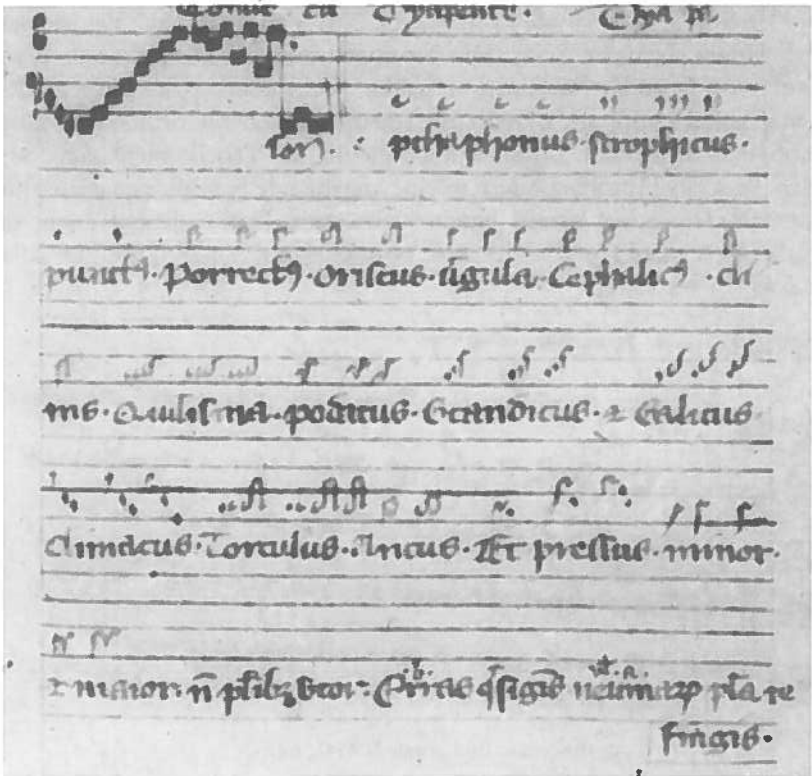 Tonus cū Dyapente.
ptha phonus. strophicus.
punctꝰ. Porrectꝰ. Oriscus. v̄gula. Cephalicꝰ. cli
nis. Quilisma. podatus. Scandicus. ⁊ Salicus.
Climacus. Torculus. Ancus. Et pressus. minor.
⁊ maior. n̄ plibꝫ utor. neumaꝝ pla re
fingis.